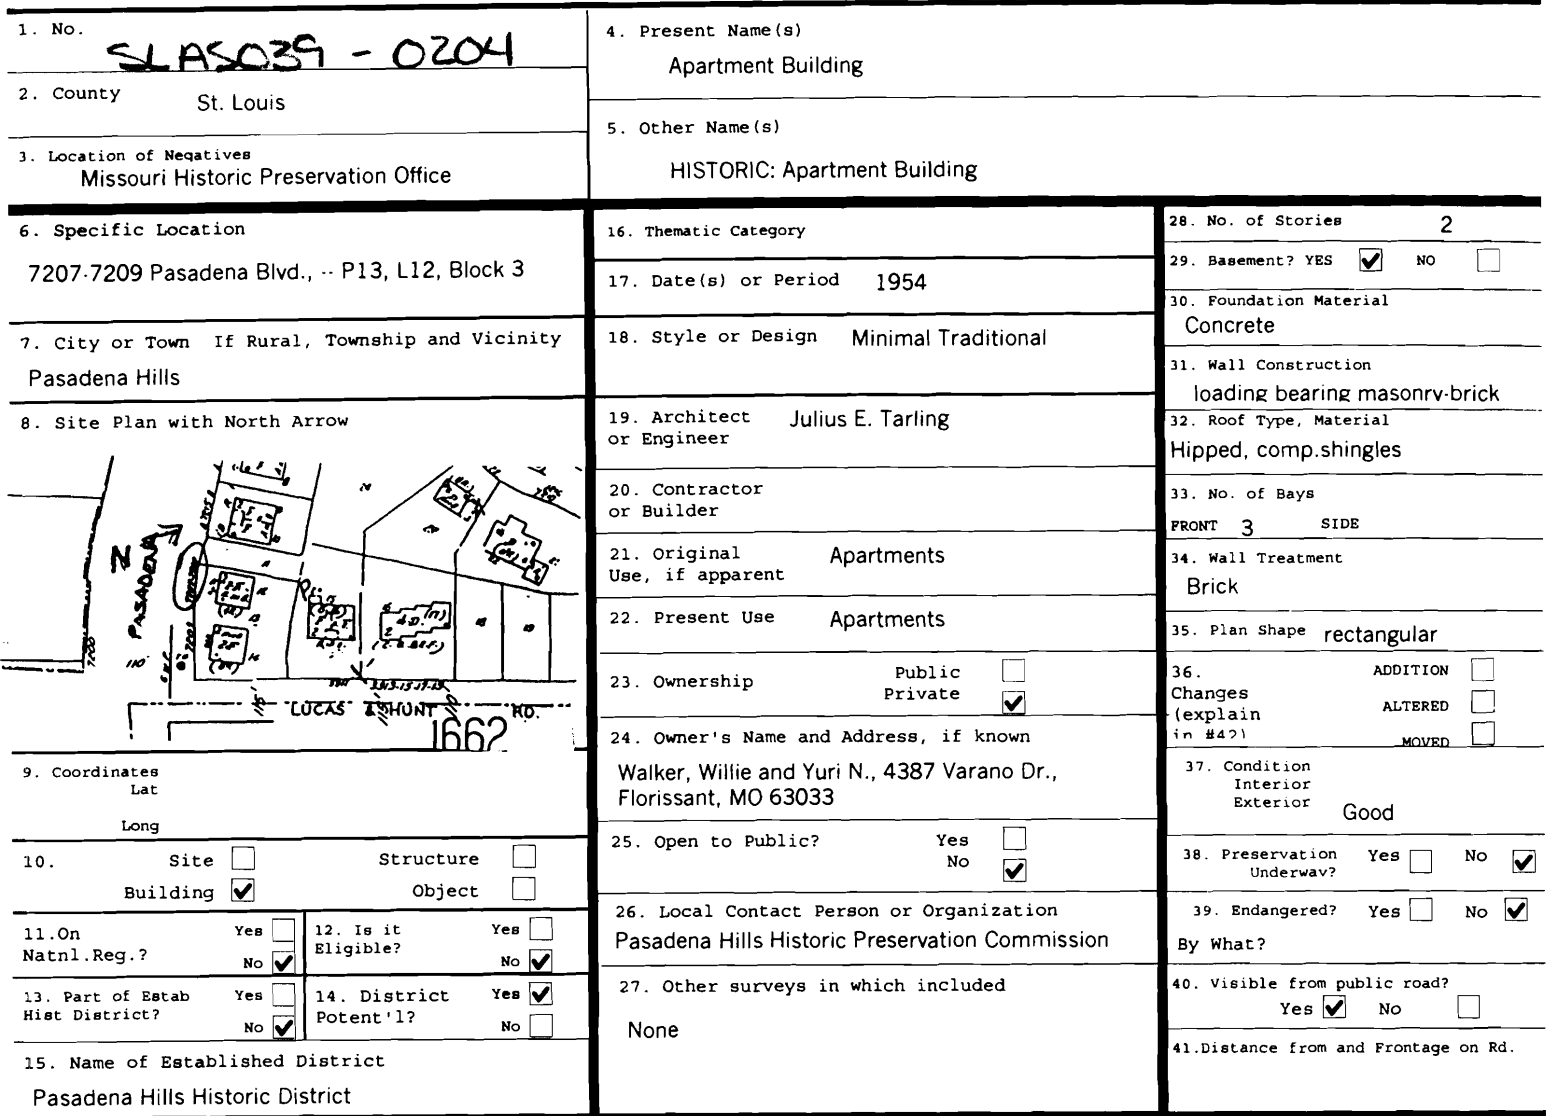 1. No.
SLAS039 - 0204
2. County
St. Louis
3. Location of Negatives
Missouri Historic Preservation Office
4. Present Name(s)
Apartment Building
5. Other Name(s)
HISTORIC: Apartment Building
6. Specific Location
7207-7209 Pasadena Blvd., -- P13, L12, Block 3
7. City or Town If Rural, Township and Vicinity
Pasadena Hills
8. Site Plan with North Arrow
N
PASADENA
7200
110'
LUCAS & HUNT RD.
1662
9. Coordinates
Lat
Long
10. Site Structure
Building Object
11.On Yes
Natnl.Reg.? No
12. Is it Yes
Eligible? No
13. Part of Estab Yes
Hist District? No
14. District Yes
Potent'l? No
15. Name of Established District
Pasadena Hills Historic District
16. Thematic Category
17. Date(s) or Period 1954
18. Style or Design Minimal Traditional
19. Architect Julius E. Tarling
or Engineer
20. Contractor
or Builder
21. Original Apartments
Use, if apparent
22. Present Use Apartments
23. Ownership Public
Private
24. Owner's Name and Address, if known
Walker, Willie and Yuri N., 4387 Varano Dr.,
Florissant, MO 63033
25. Open to Public? Yes
No
26. Local Contact Person or Organization
Pasadena Hills Historic Preservation Commission
27. Other surveys in which included
None
28. No. of Stories 2
29. Basement? YES NO
30. Foundation Material
Concrete
31. Wall Construction
loading bearing masonry-brick
32. Roof Type, Material
Hipped, comp.shingles
33. No. of Bays
FRONT 3 SIDE
34. Wall Treatment
Brick
35. Plan Shape rectangular
36. ADDITION
Changes
(explain ALTERED
in #42) MOVED
37. Condition
Interior
Exterior Good
38. Preservation Yes No
Underway?
39. Endangered? Yes No
By What?
40. Visible from public road?
Yes No
41.Distance from and Frontage on Rd.